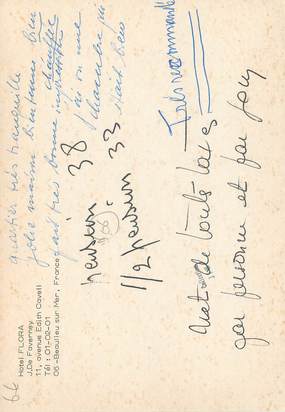 quartier très tranquille
jolie maison bien tenue bien chauffée
fait très bonne impression
si on me
chambre qui
était bien
pension 38
1/2 pension 33
Très recommandé
Net de toutes taxes
par personne et par jour
Hotel FLORA
J.De Faverney
11, avenue Edith Cavell
Tél : 01-02-01
06-Beaulieu sur Mer, France
66